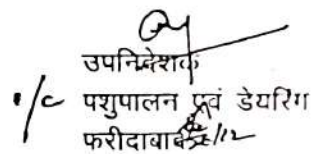 उपनिदेशक
1/c पशुपालन एवं डेयरिंग
फरीदाबाद